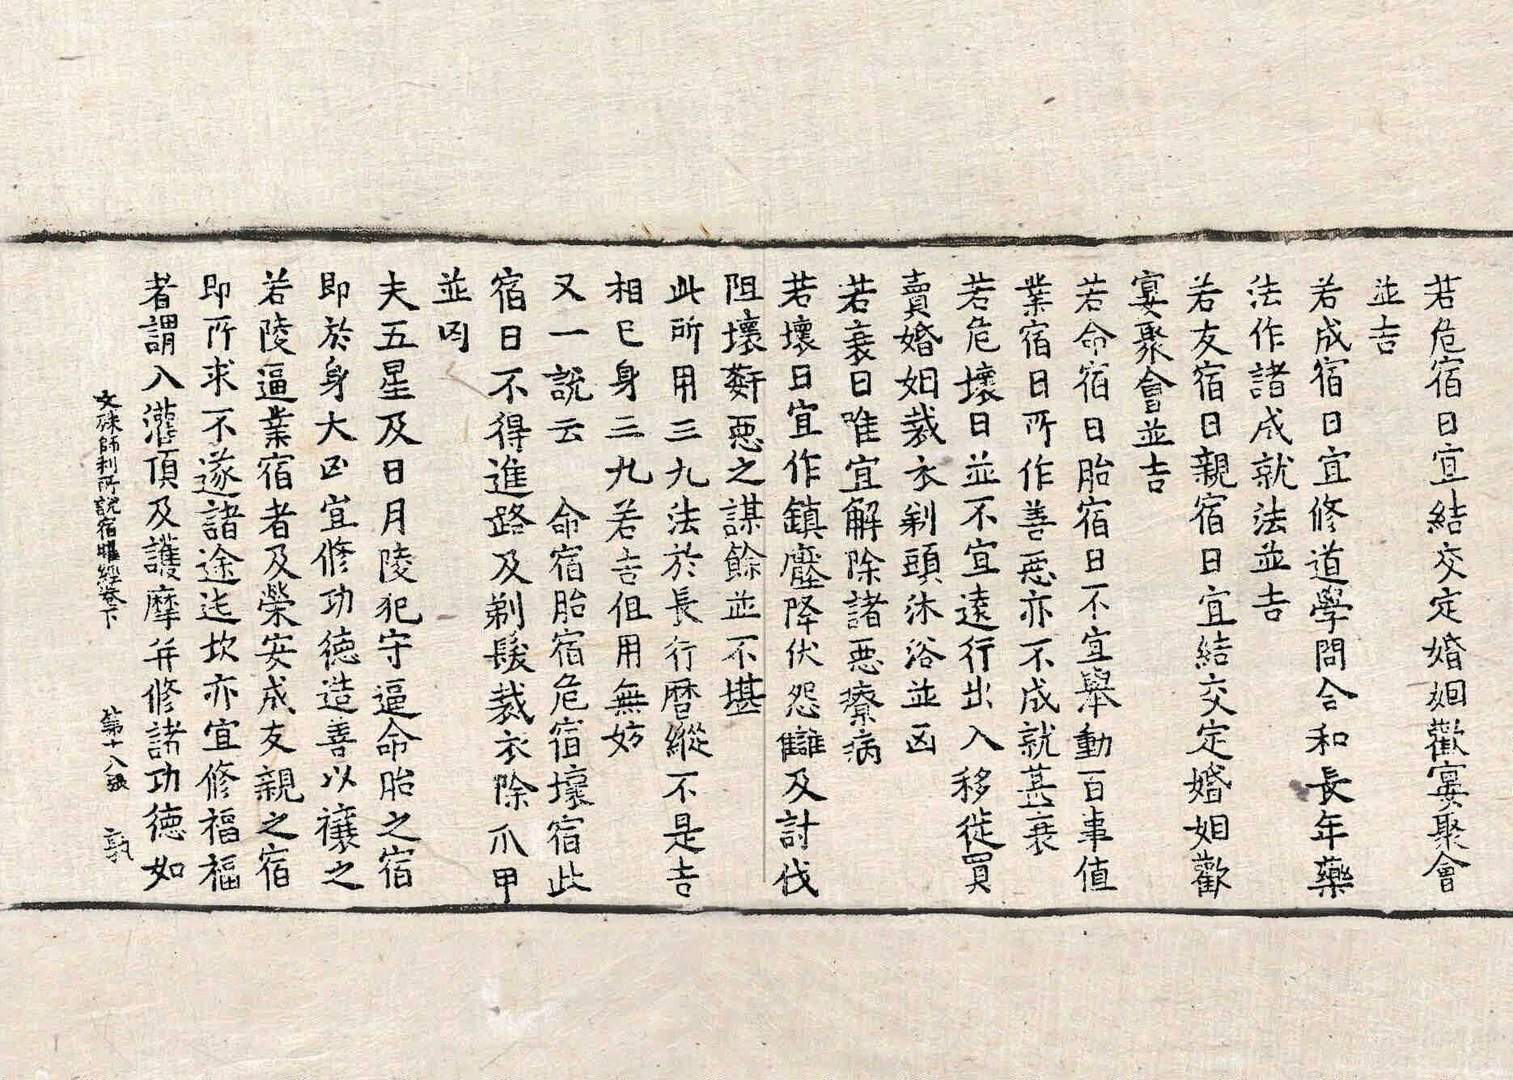 若危宿日宜結交定婚姻歡宴聚會
並吉
若成宿日宜修道學問合和長年藥
法作諸成就法並吉
若友宿日親宿日宜結交定婚姻歡
宴聚會並吉
若命宿日胎宿日不宜舉動百事值
業宿日所作善惡亦不成就甚衰
若危壞日並不宜遠行出入移徙買
賣婚姻裁衣剃頭沐浴並凶
若衰日唯宜解除諸惡療病
若壞日宜作鎮壓降伏怨讎及討伐
阻壞姧惡之謀餘並不堪
此所用三九法於長行曆縱不是吉
相己身三九若吉但用無妨
又一說云 命宿胎宿危宿壞宿此
宿日不得進路及剃髮裁衣除爪甲
並凶
夫五星及日月陵犯守逼命胎之宿
即於身大凶宜修功德造善以禳之
若陵逼業宿者及榮安成友親之宿
即所求不遂諸途迍坎亦宜修福福
者謂入灌頂及護摩并修諸功德如
文殊師利所說宿曜經卷下 第十八張 孰